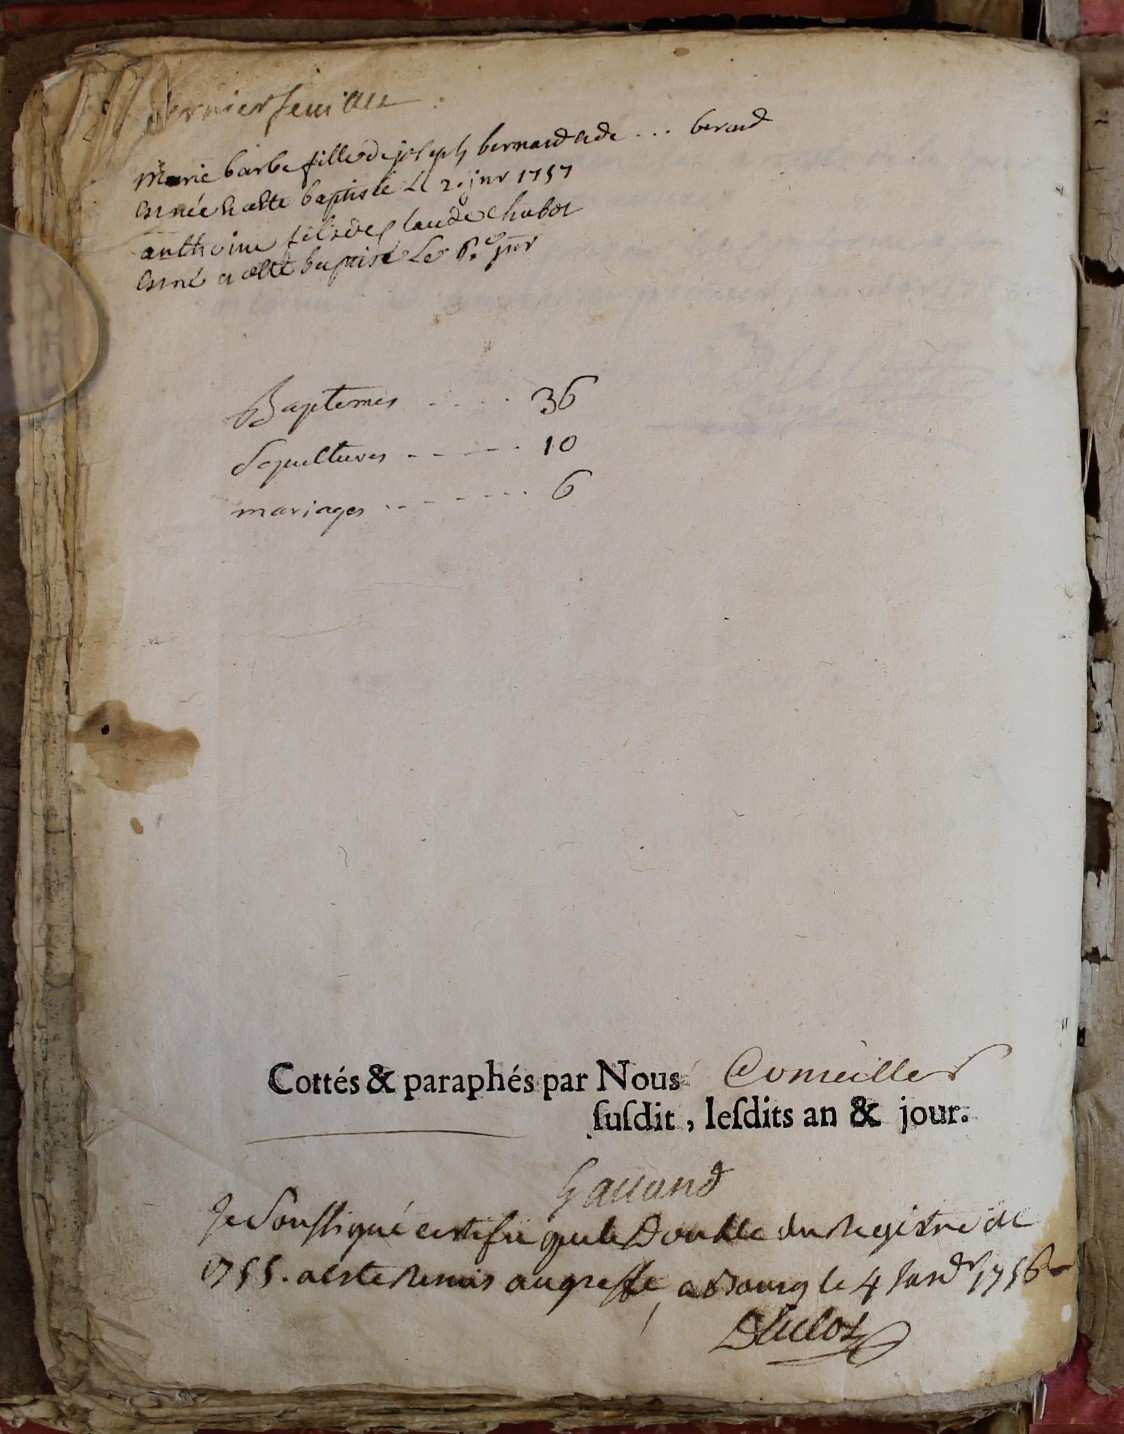 dernier feuillet
Marie barbe fille de joseph bernard et de ... berard
est née et a este baptisée le 2. jnr 1757
anthoine fils de claude chabot
est né et a esté baptisé le 6.e jnr
Baptemes ..... 36
Sepultures ..... 10
mariages ....... 6
Cottés & paraphés par Nous Conseiller
ſuſdit, leſdits an & jour.
Galland
Je Soussigné certifie que le Double du Registre de
1755. a este Remis au greffe, a Bourg le 4
1756
Duclos